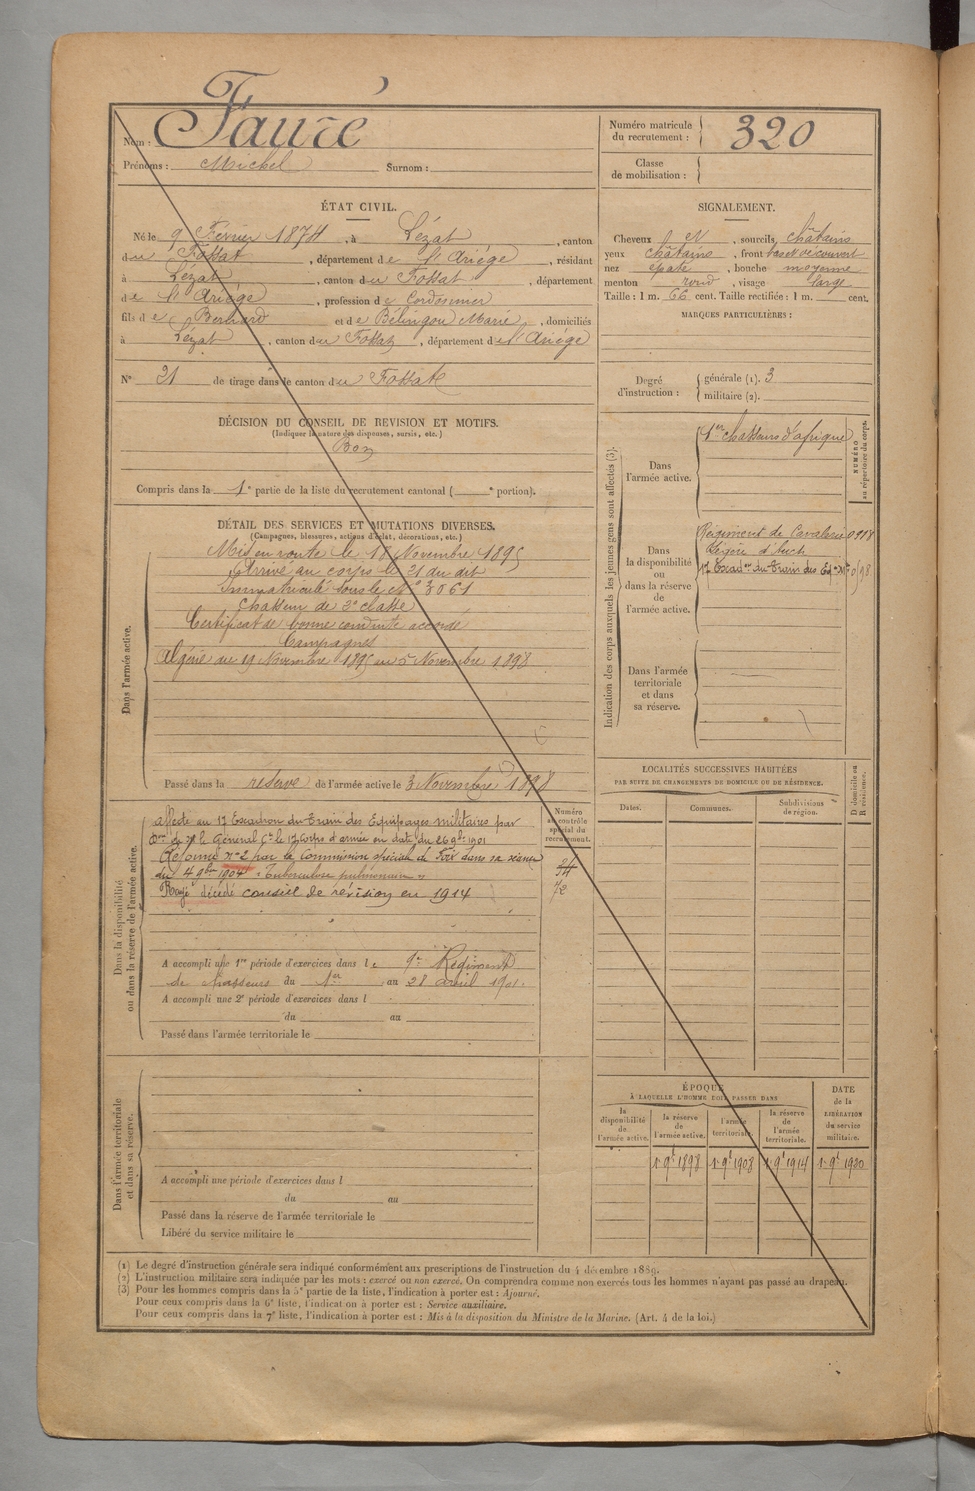 Nom : Fauré
Prénoms : Michel Surnom :
Numéro matricule du recrutement : 320
Classe de mobilisation :
ÉTAT CIVIL.
Né le 9 Février 1874, à Lézat, canton
du Fossat, département de l'Ariège, résidant
à Lézat, canton du Fossat, département
de l'Ariège, profession de Cordonnier
fils de Bernard et de Bélingou Marie, domiciliés
à Lézat, canton du Fossat, département de l'Ariège
N° 21 de tirage dans le canton du Fossat
SIGNALEMENT.
Cheveux et, sourcils châtains
yeux châtains, front bas et découvert
nez épaté, bouche moyenne
menton rond, visage large
Taille : 1 m. 66 cent. Taille rectifiée : 1 m. cent.
MARQUES PARTICULIÈRES :
Degré d'instruction : générale (1). 3
militaire (2).
DÉCISION DU CONSEIL DE REVISION ET MOTIFS.
(Indiquer la nature des dispenses, sursis, etc.)
Bon
Compris dans la 1e partie de la liste du recrutement cantonal ( e portion).
DÉTAIL DES SERVICES ET MUTATIONS DIVERSES.
(Campagnes, blessures, actions d'éclat, décorations, etc.)
Dans l'armée active.
Mis en route le 18 Novembre 1895
Arrivé au corps le 21 du dit
Immatriculé sous le n° 3061
Chasseur de 2e classe
Certificat de bonne conduite accordé
Campagnes
Algérie du 19 Novembre 1895 au 5 Novembre 1898
Passé dans la réserve de l'armée active le 3 Novembre 1898
Indication des corps auxquels les jeunes gens sont affectés (3).
NUMÉRO au répertoire du corps.
Dans l'armée active.
1er chasseurs d'afrique
Dans la disponibilité ou dans la réserve de l'armée active.
Régiment de Cavalerie
Légère d'Auch
17 Escadon du Train des Eq. Mres
Dans l'armée territoriale et dans sa réserve.
LOCALITÉS SUCCESSIVES HABITÉES
PAR SUITE DE CHANGEMENTS DE DOMICILE OU DE RÉSIDENCE.
Dates. Communes. Subdivisions de région. D domicile ou R résidence.
Dans la disponibilité ou dans la réserve de l'armée active.
Numéro au contrôle spécial du recrutement.
affecté au 17 Escadron du Train des Equipages militaires par
Don de Mr le Général Ct le 17 Corps d'armée en date du 26 9bre 1901
Réformé n°2 par la Commission spéciale de Foix dans sa séance
du 4 9bre 1904 "Tuberculose pulmonaire"
Rayé décédé conseil de révision en 1914
34
72
A accompli une 1re période d'exercices dans le 9e Régiment
de Chasseurs du 1er au 28 avril 1901.
A accompli une 2e période d'exercices dans l
du au
Passé dans l'armée territoriale le
Dans l'armée territoriale et dans sa réserve.
A accompli une période d'exercices dans l
du au
Passé dans la réserve de l'armée territoriale le
Libéré du service militaire le
ÉPOQUE
À LAQUELLE L'HOMME DOIT PASSER DANS
la disponibilité de l'armée active. la réserve de l'armée active. l'armée territoriale. la réserve de l'armée territoriale.
DATE de la LIBÉRATION du service militaire.
1er 9bre 1898 1er 9bre 1908 1er 9bre 1914 1er 9bre 1920
(1) Le degré d'instruction générale sera indiqué conformément aux prescriptions de l'instruction du 4 décembre 1889.
(2) L'instruction militaire sera indiquée par les mots : exercé ou non exercé. On comprendra comme non exercés tous les hommes n'ayant pas passé au drapeau.
(3) Pour les hommes compris dans la 5e partie de la liste, l'indication à porter est : Ajourné.
Pour ceux compris dans la 6e liste, l'indication à porter est : Service auxiliaire.
Pour ceux compris dans la 7e liste, l'indication à porter est : Mis à la disposition du Ministre de la Marine. (Art. 4 de la loi.)